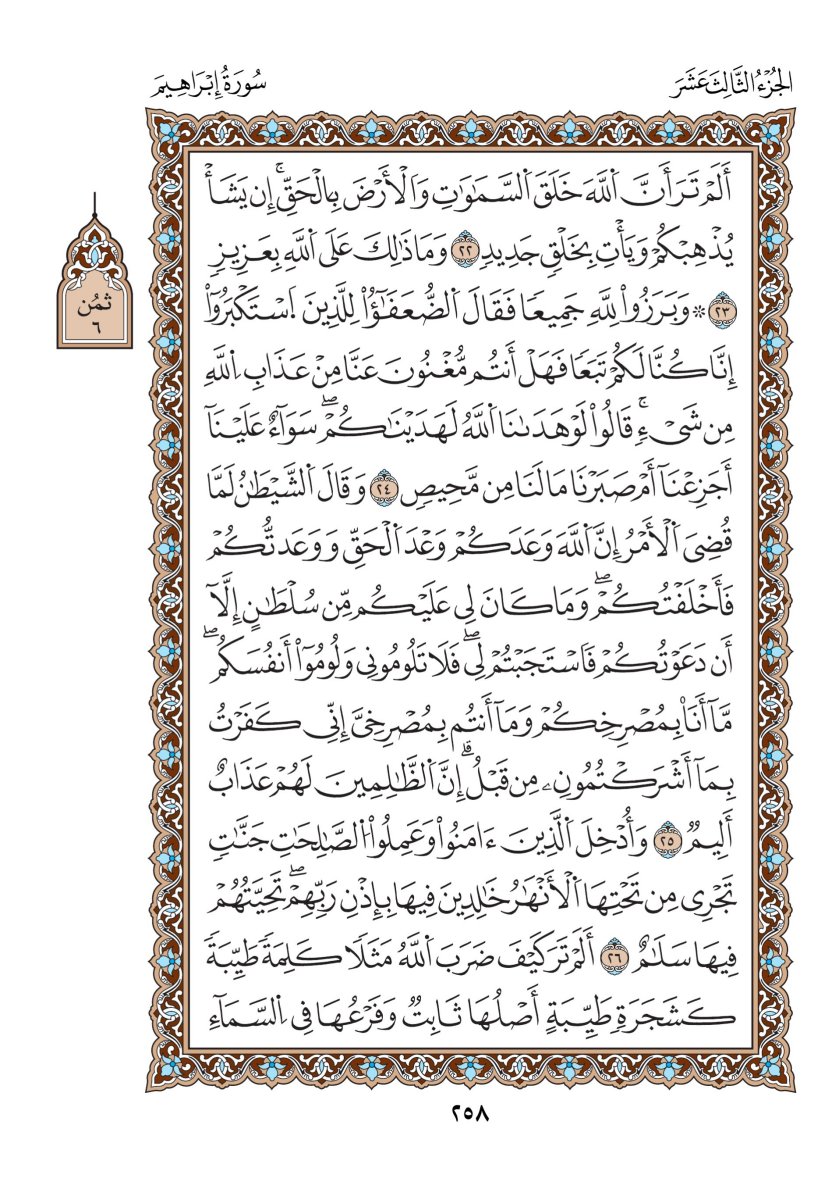 الجُزْءُ الثَّالِثَ عَشَرَ
سُورَةُ إِبْرَاهِيمَ
أَلَمْ تَرَ أَنَّ اَ۬للَّهَ خَلَقَ اَ۬لسَّمَٰوَٰتِ وَالْأَرْضَ بِالْحَقِّۚ إِنْ يَشَأْ
يُذْهِبْكُمْ وَيَأْتِ بِخَلْقٍ جَدِيدٍ ٢٢ وَمَا ذَٰلِكَ عَلَى اَ۬للَّهِ بِعَزِيزٍ
٢٣ ۞ وَبَرَزُواْ لِلهِ جَمِيعًا فَقَالَ اَ۬لضُّعَفَٰٓؤُاْ لِلَّذِينَ اَ۪سْتَكْبَرُوٓاْ
إِنَّا كُنَّا لَكُمْ تَبَعًا فَهَلْ أَنتُم مُّغْنُونَ عَنَّا مِنْ عَذَابِ اِ۬للَّهِ
مِن شَيْءٖۚ قَالُواْ لَوْ هَدَىٰنَا اَ۬للَّهُ لَهَدَيْنَٰكُمْۖ سَوَآءٌ عَلَيْنَآ
أَجَزِعْنَآ أَمْ صَبَرْنَا مَا لَنَا مِن مَّحِيصٍ ٢٤ وَقَالَ اَ۬لشَّيْطَٰنُ لَمَّا
قُضِيَ اَ۬لْأَمْرُ إِنَّ اَ۬للَّهَ وَعَدَكُمْ وَعْدَ اَ۬لْحَقِّ وَوَعَدتُّكُمْ
فَأَخْلَفْتُكُمْۖ وَمَا كَانَ لِي عَلَيْكُم مِّن سُلْطَٰنٍ إِلَّآ
أَن دَعَوْتُكُمْ فَاسْتَجَبْتُمْ لِيۖ فَلَا تَلُومُونِي وَلُومُوٓاْ أَنفُسَكُمۖ
مَّآ أَنَا۠ بِمُصْرِخِكُمْ وَمَآ أَنتُم بِمُصْرِخِيَّ إِنِّي كَفَرْتُ
بِمَآ أَشْرَكْتُمُونِۦ مِن قَبْلُۗ إِنَّ اَ۬لظَّٰلِمِينَ لَهُمْ عَذَابٌ
أَلِيمٌ ٢٥ وَأُدْخِلَ اَ۬لَّذِينَ ءَامَنُواْ وَعَمِلُواْ اُ۬لصَّٰلِحَٰتِ جَنَّٰتٍ
تَجْرِي مِن تَحْتِهَا اَ۬لْأَنْهَٰرُ خَٰلِدِينَ فِيهَا بِإِذْنِ رَبِّهِمْۖ تَحِيَّتُهُمْ
فِيهَا سَلَٰمٌ ٢٦ أَلَمْ تَرَ كَيْفَ ضَرَبَ اَ۬للَّهُ مَثَلًا كَلِمَةً طَيِّبَةً
كَشَجَرَةٍ طَيِّبَةٍ أَصْلُهَا ثَابِتٌ وَفَرْعُهَا فِي اِ۬لسَّمَآءِ
ثمُن
٦
٢٥٨